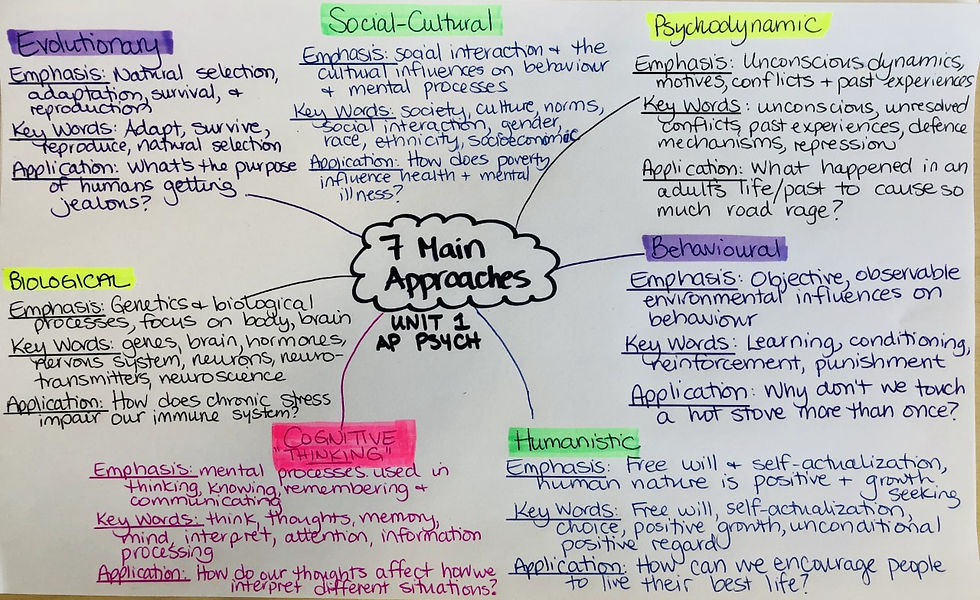 Evolutionary
Emphasis: Natural selection,
adaptation, survival, &
reproduction
Key Words: Adapt, survive,
reproduce, natural selection
Application: What's the purpose
of humans getting
jealous?
Social-Cultural
Emphasis: social interaction & the
cultural influences on behaviour
& mental processes
Key Words: society, culture, norms,
social interaction, gender,
race, ethnicity, socioeconomic
Application: How does poverty
influence health + mental
illness?
Psychodynamic
Emphasis: Unconscious dynamics,
motives, conflicts + past experiences
Key Words: unconscious, unresolved
conflicts, past experiences, defence
mechanisms, repression
Application: What happened in an
adult's life/past to cause so
much road rage?
7 Main
Approaches
UNIT 1
AP PSYCH
BIOLOGICAL
Emphasis: Genetics & biological
processes, focus on body, brain
Key Words: genes, brain, hormones,
nervous system, neurons, neuro-
transmitters, neuroscience
Application: How does chronic stress
impair our immune system?
Behavioural
Emphasis: Objective, observable
environmental influences on
behaviour
Key Words: Learning, conditioning,
reinforcement, punishment
Application: Why don't we touch
a hot stove more than once?
COGNITIVE
"THINKING"
Emphasis: mental processes used in
thinking, knowing, remembering &
communicating
Key Words: think, thoughts, memory,
mind, interpret, attention, information
processing
Application: How do our thoughts affect how we
interpret different situations?
Humanistic
Emphasis: Free will & self-actualization,
human nature is positive + growth
seeking
Key Words: Free will, self-actualization,
choice, positive growth, unconditional
positive regard
Application: How can we encourage people
to live their best life?